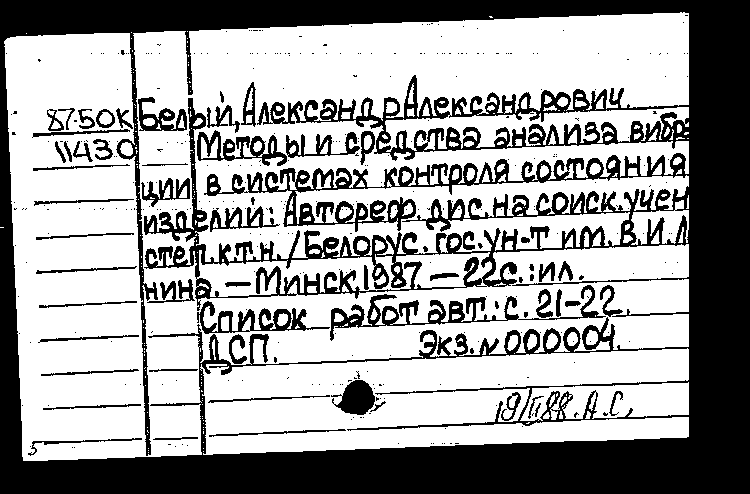 87-50К Белый, Александр Александрович.
11430 Методы и средства анализа вибра
ции в системах контроля состояния
изделий: Автореф. дис. на соиск. учен
степ. к.т.н. / Белорус. гос. ун-т им. В.И.Л
нина. — Минск, 1987. — 22с.: ил.
Список работ авт.: с. 21-22.
ДСП. Экз. № 000004.
19/II 88. А.С.
5